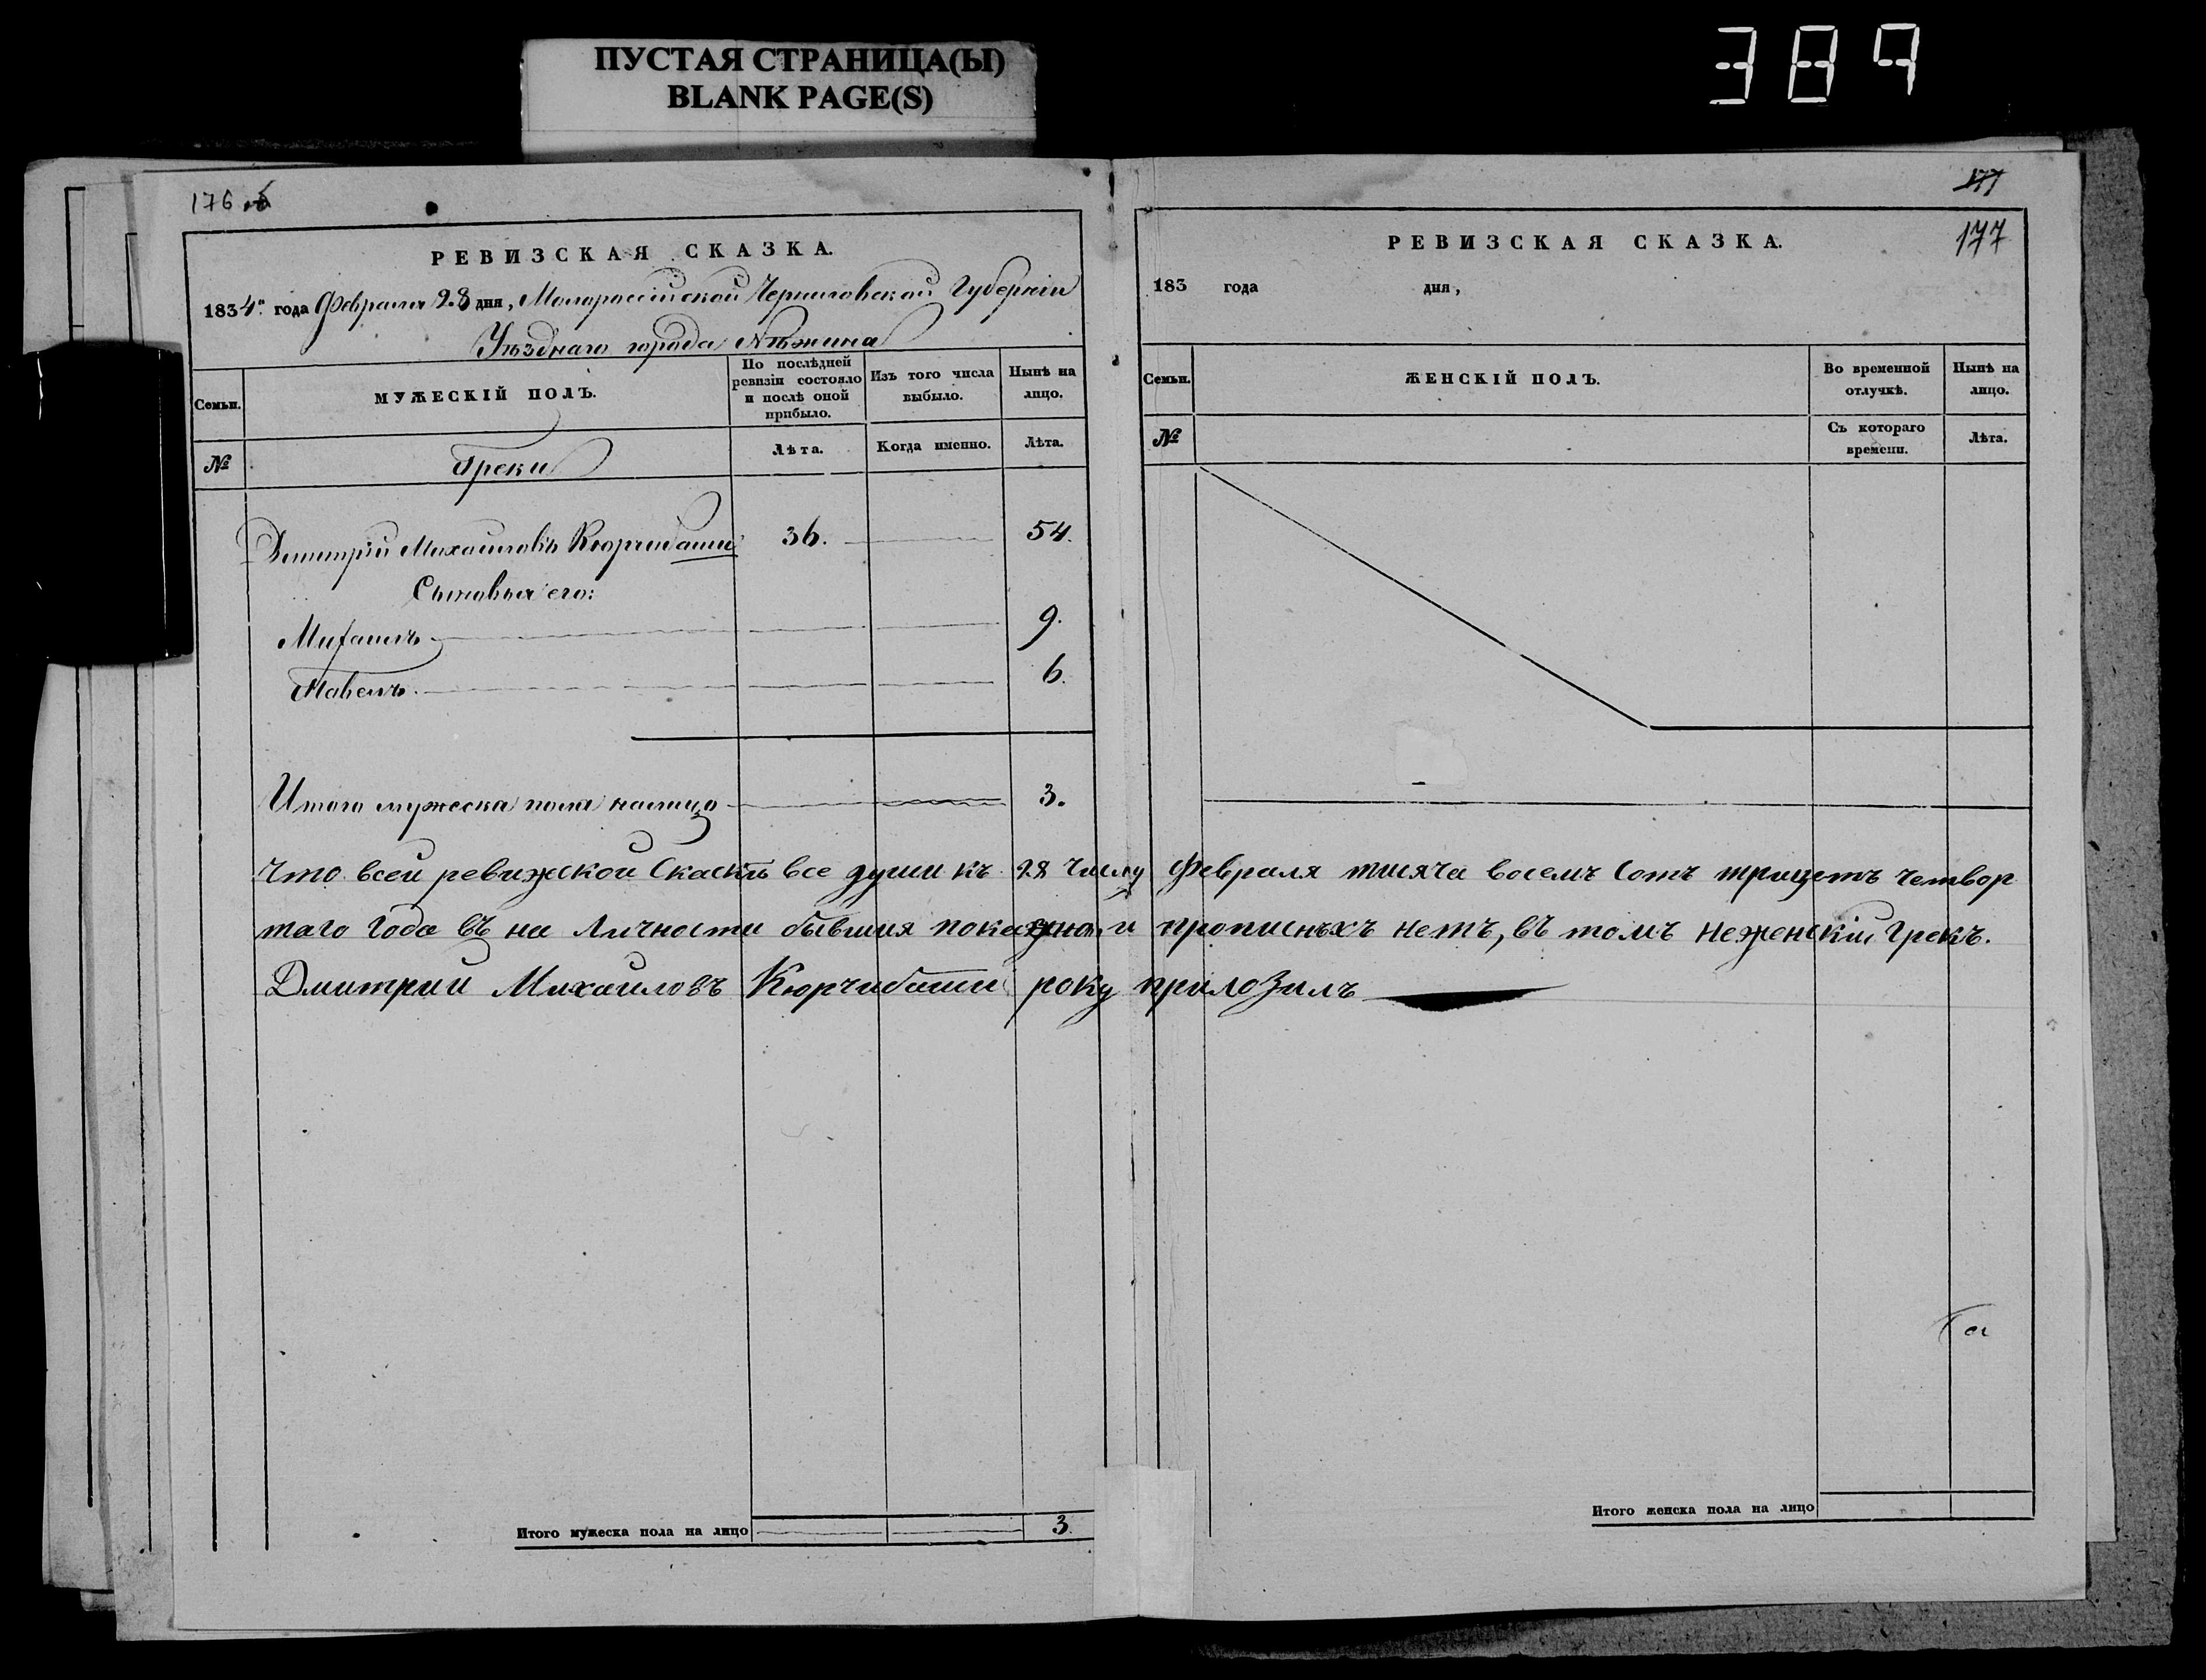 ПУСТАЯ СТРАНИЦА(Ы)
BLANK PAGE(S)
389
176 об
РЕВИЗСКАЯ СКАЗКА.
1834го года Февраля 28 дня, Малороссійской Черниговской Губерніи
Уѣзднаго города Нѣжина
Семьи.
МУЖЕСКІЙ ПОЛЪ.
По послѣдней ревизіи состояло и послѣ оной прибыло.
Изъ того числа выбыло.
Нынѣ на лицо.
№
Греки
Лѣта.
Когда именно.
Лѣта.
Дмитрій Михаиловъ Кюрчибаши 36. 54.
Сыновья его:
Михаилъ 9.
Павелъ 6.
Итого мужеска пола налицо 3.
177
177
РЕВИЗСКАЯ СКАЗКА.
183 года дня,
Семьи.
ЖЕНСКІЙ ПОЛЪ.
Во временной отлучкѣ.
Нынѣ на лицо.
№
Съ котораго времени.
Лѣта.
Что всей ревижской Скаскѣ все души къ 28 числу Февраля тисяча восемъ Сотъ трицетъ четвор
таго Года въ на Личности бывшия показана и прописныхъ нетъ, въ томъ неженскіи Грекъ.
Дмитрий Михаиловъ Кюрчибаши року прилозилъ
Итого мужеска пола на лицо 3
Итого женска пола на лицо